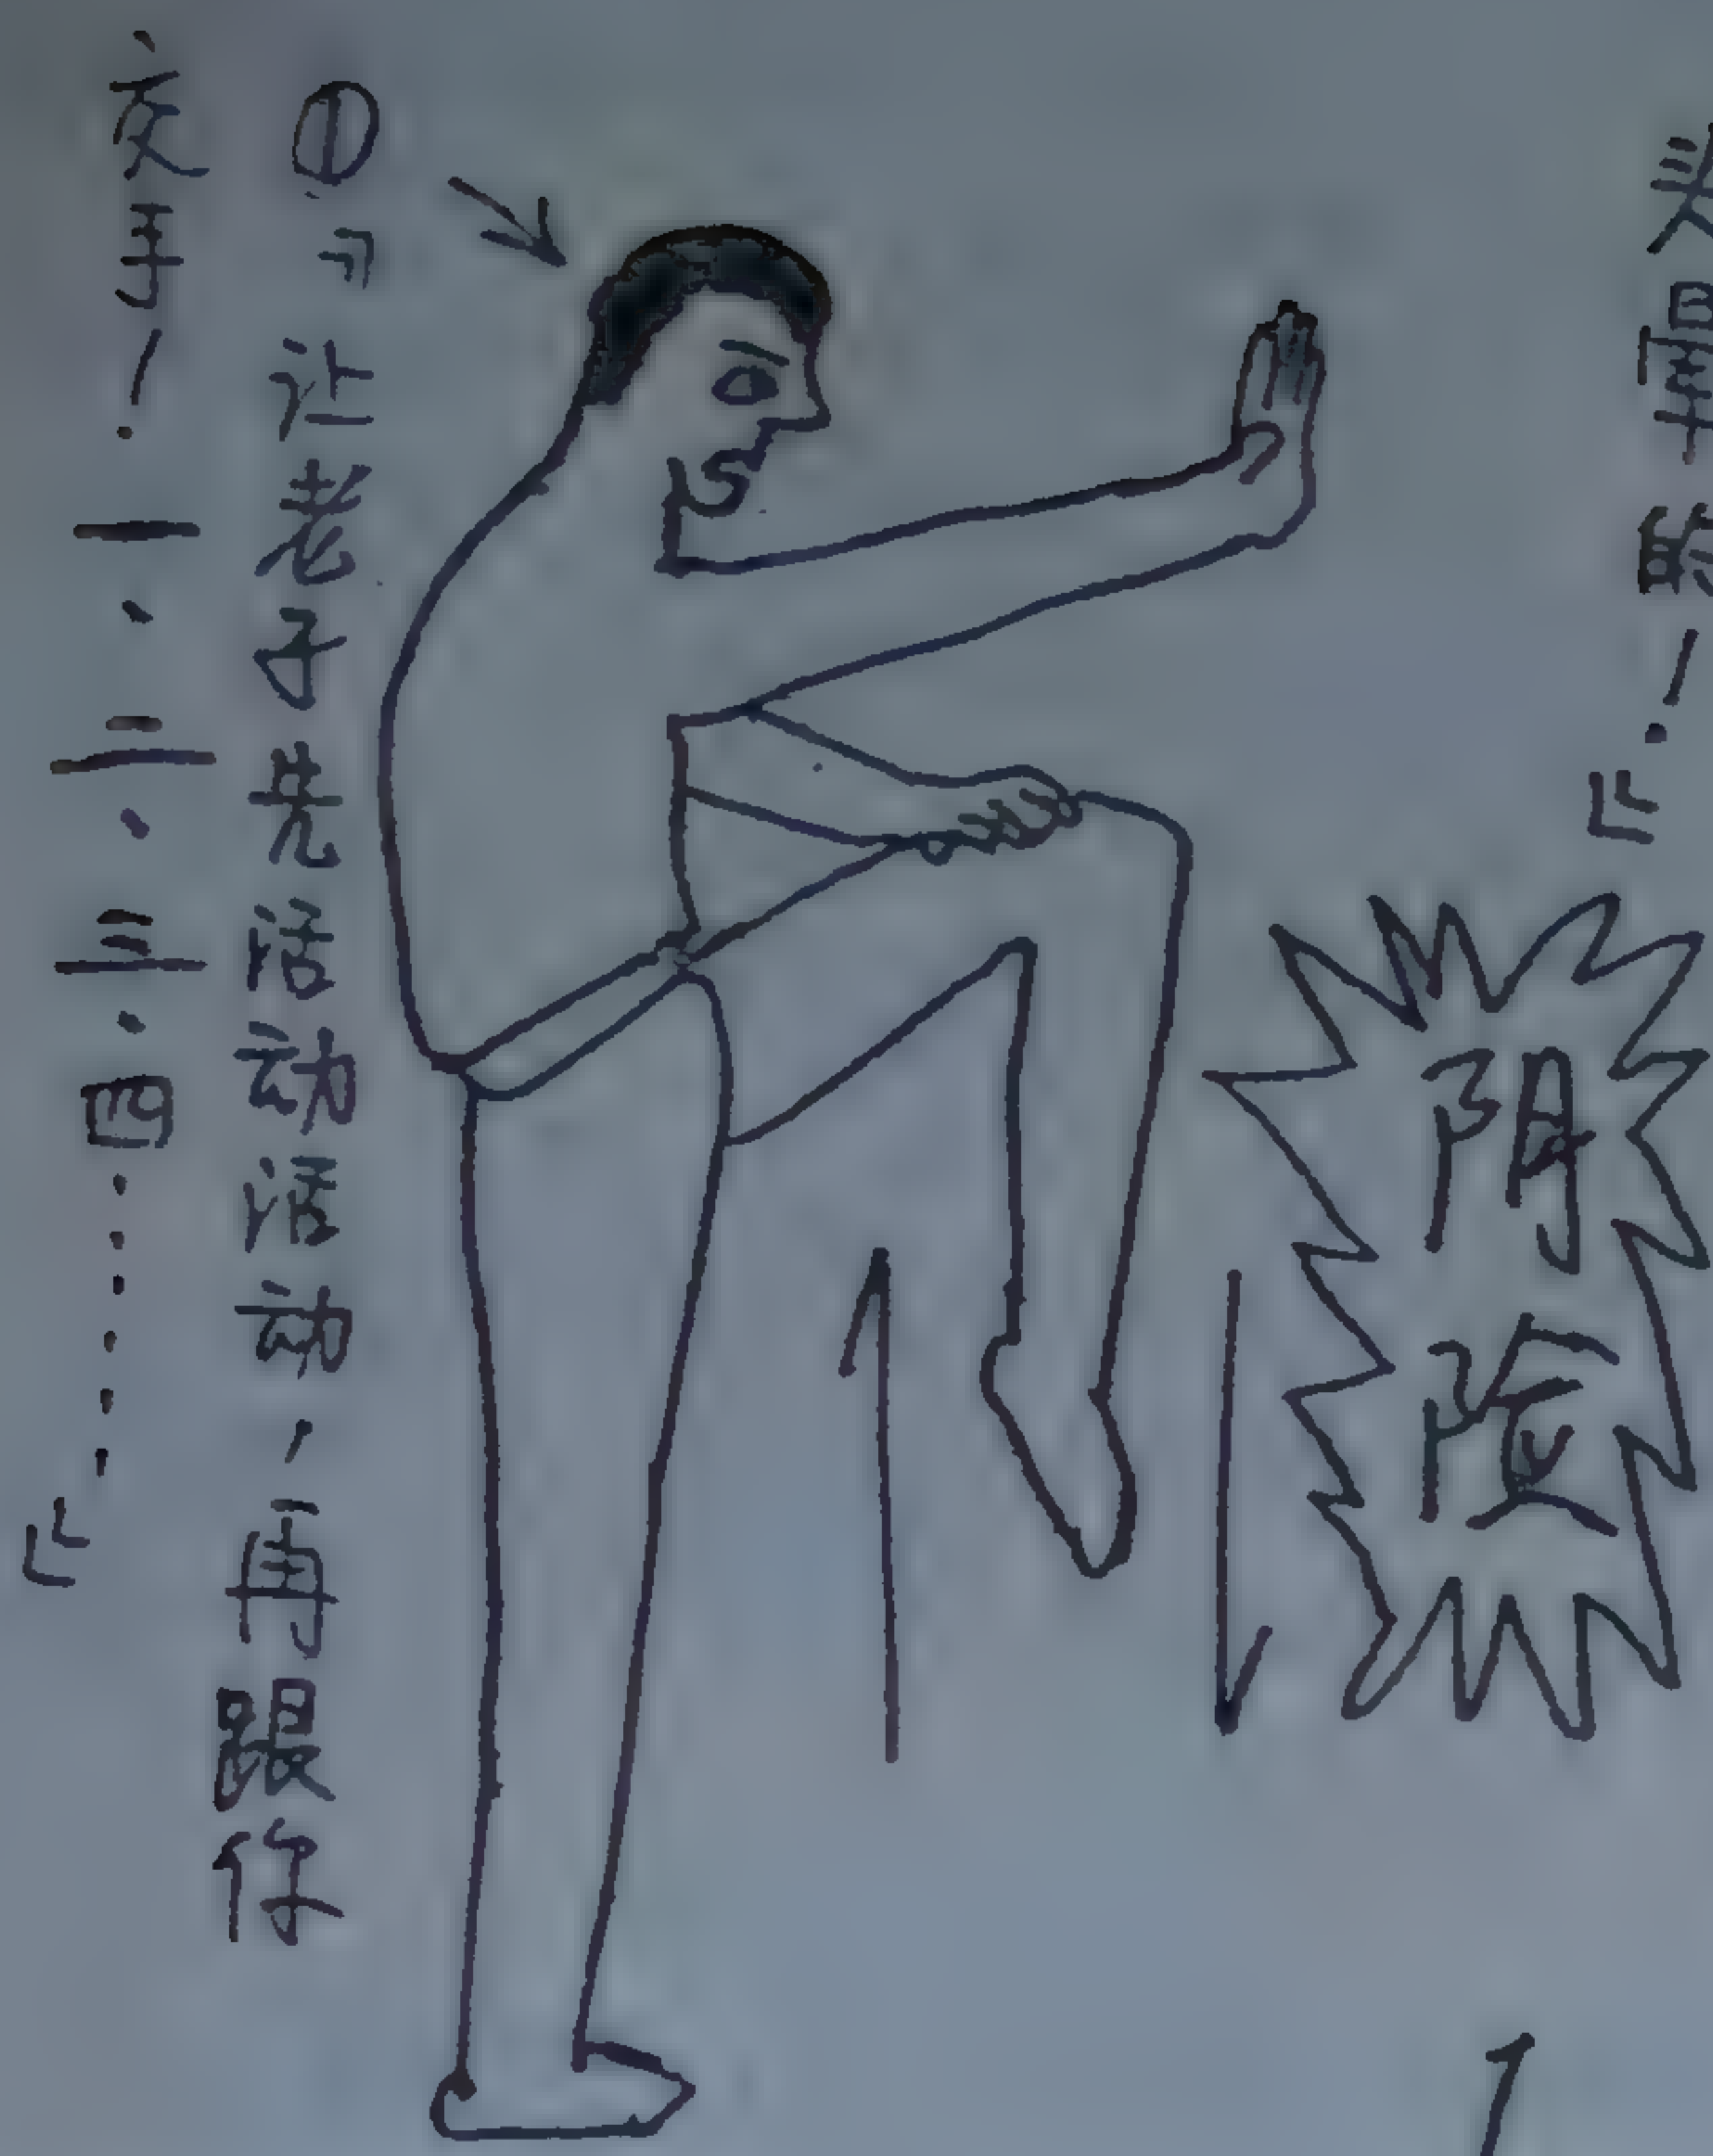 头晕
!』
阴险
①『让老子先活动活动,再跟你
交手!一、二、三、四……』